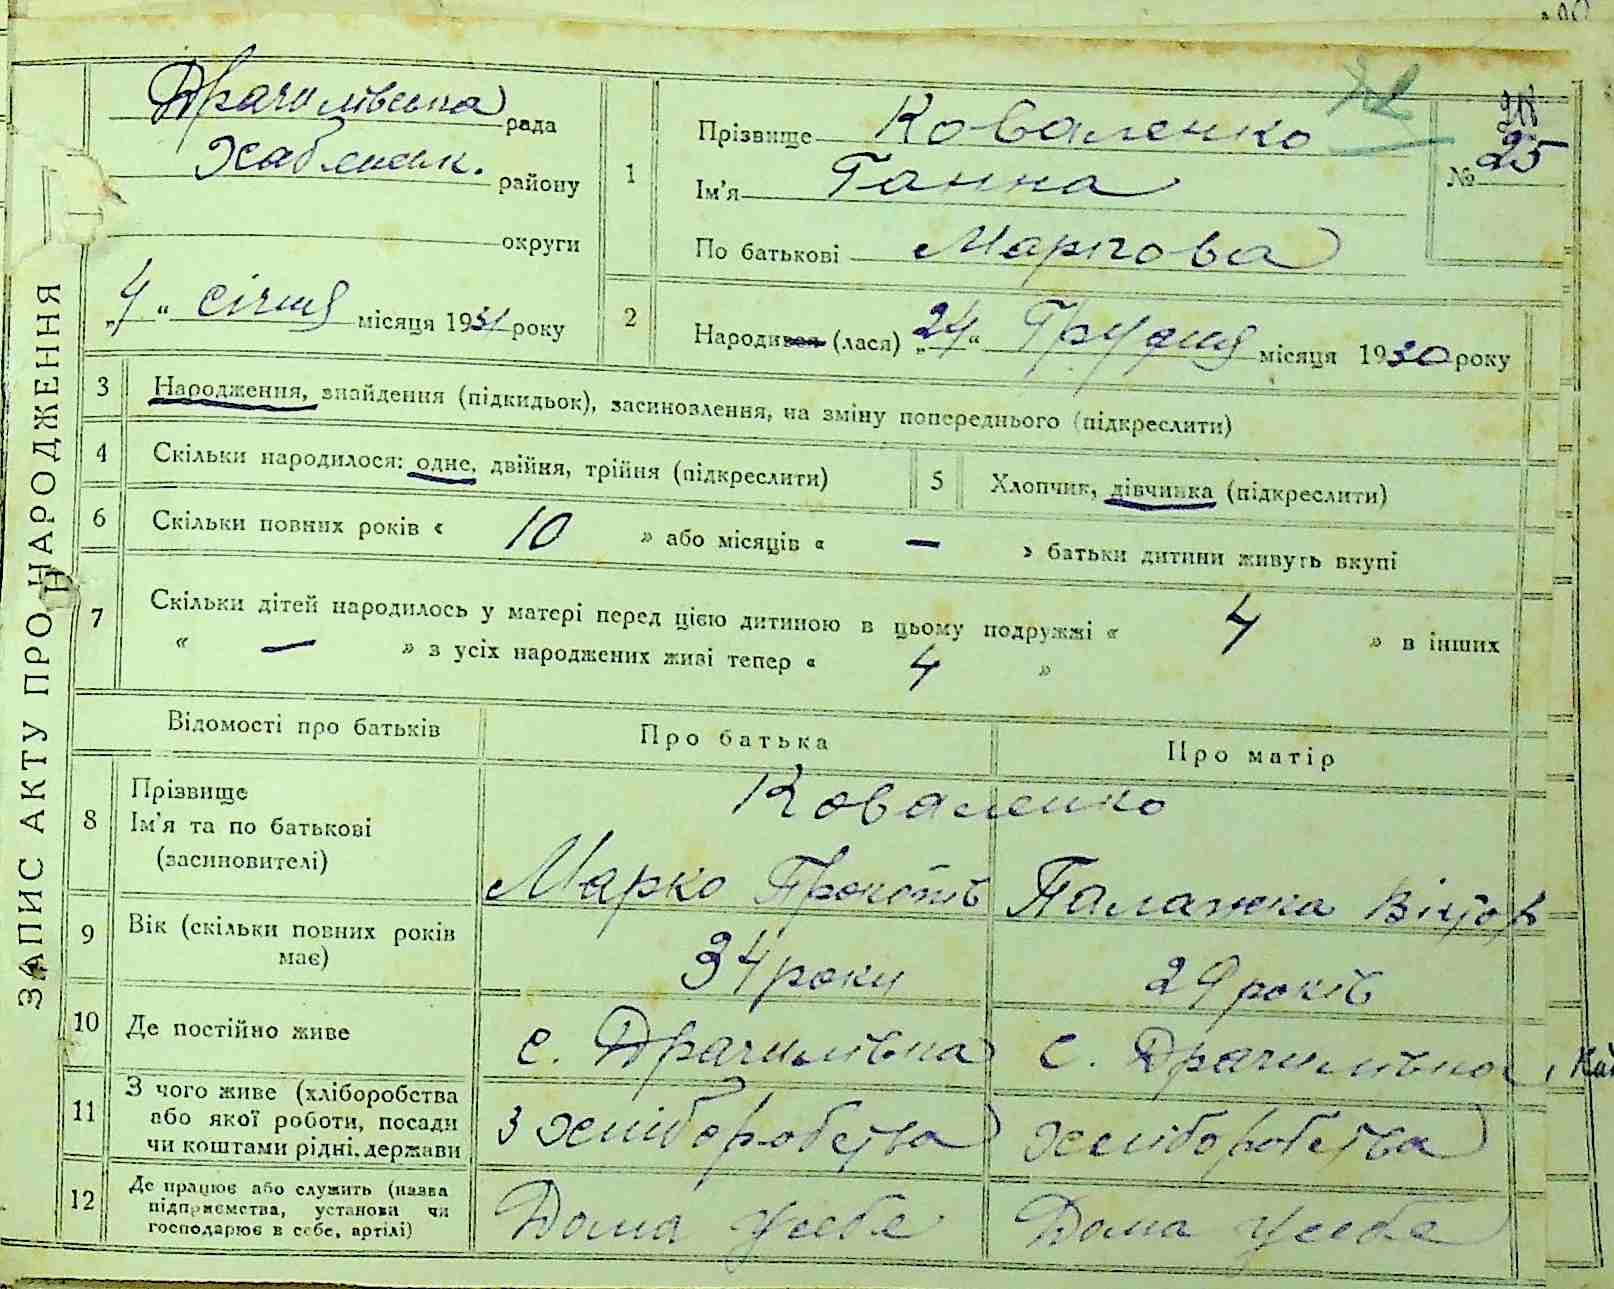 ЗАПИС АКТУ ПРО НАРОДЖЕННЯ
Драчилівська рада
Хабенськ. району
округи
„4“ січня місяця 1931 року
1
Прізвище Коваленко
Ім'я Ганна
По батькові Маркова
№ 25
2
Народився (лася) „24“ Грудня місяця 1930 року
3 Народження, знайдення (підкидьок), засиновлення, на зміну попереднього (підкреслити)
4 Скільки народилося: одне, двійня, трійня (підкреслити)
5 Хлопчик, дівчинка (підкреслити)
6 Скільки повних років « 10 » або місяців « — » батьки дитини живуть вкупі
7 Скільки дітей народилось у матері перед цією дитиною в цьому подружжі « 4 » в інших
« — » з усіх народжених живі тепер « 4 »
Відомості про батьків Про батька Про матір
8 Прізвище
Ім'я та по батькові
(засиновителі)
Коваленко
Марко Прокопів Палажка Віктор
9 Вік (скільки повних років
має)
34 роки 29 років
10 Де постійно живе с. Драчилівка с. Драчилівка
11 З чого живе (хліборобства
або якої роботи, посади
чи коштами рідні, держави
з хліборобства хліборобства
12 Де працює або служить (назва
підприємства, установи чи
господарює в себе, артілі)
Дома усебе Дома усебе